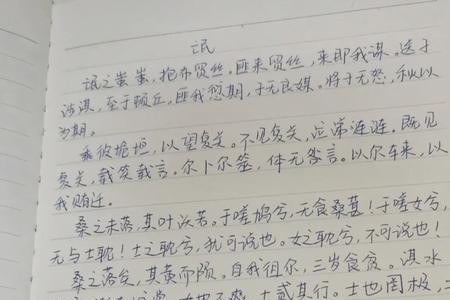 氓
氓之蚩蚩,抱布贸丝。匪来贸丝,来即我谋。送子
涉淇,至于顿丘。匪我愆期,子无良媒。将子无怒,秋以
为期。
乘彼垝垣,以望复关。不见复关,泣涕涟涟,既见
复关,载笑载言。尔卜尔筮,体无咎言。以尔车来,以
我贿迁。
桑之未落,其叶沃若。于嗟鸠兮,无食桑葚!于嗟女兮,
无与士耽!士之耽兮,犹可说也。女之耽兮,不可说也!
桑之落矣,其黄而陨。自我徂尔,三岁食贫。淇水
也不爽,士贰其行。士也罔极,二